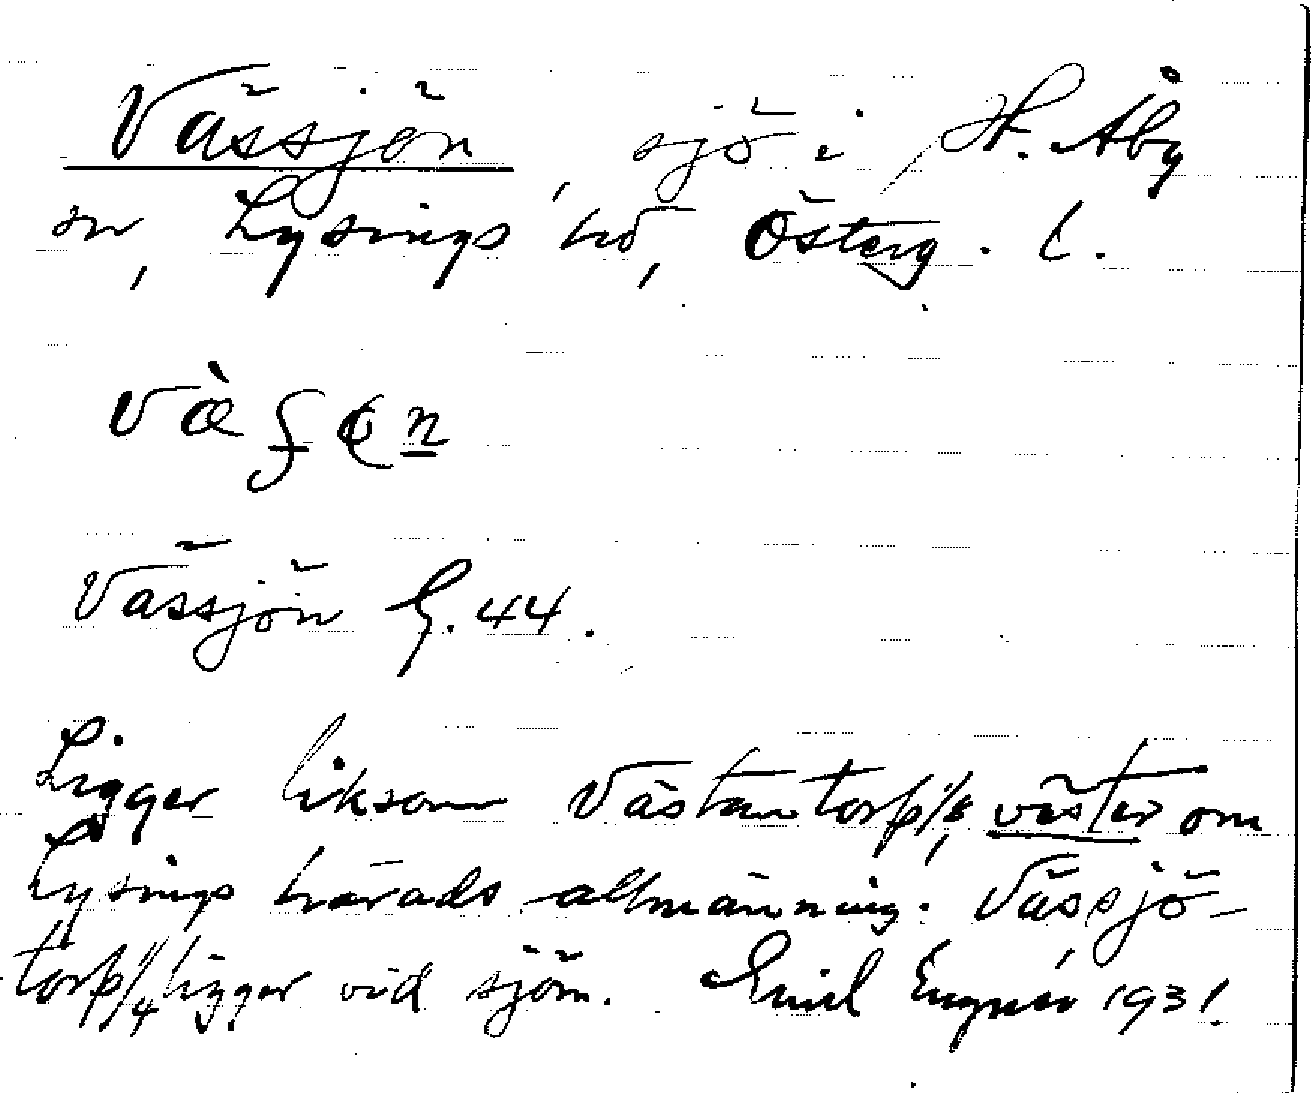 Vässjön, sjö i H. Åby
sn, Lysings hd, Österg. l.
Vässjön G. 44.
Ligger liksom Västantorp 1/8, väster om
Lysings härads allmänning. Vässjö-
torp 1/4 ligger vid sjön. Emil Engnér 1931.